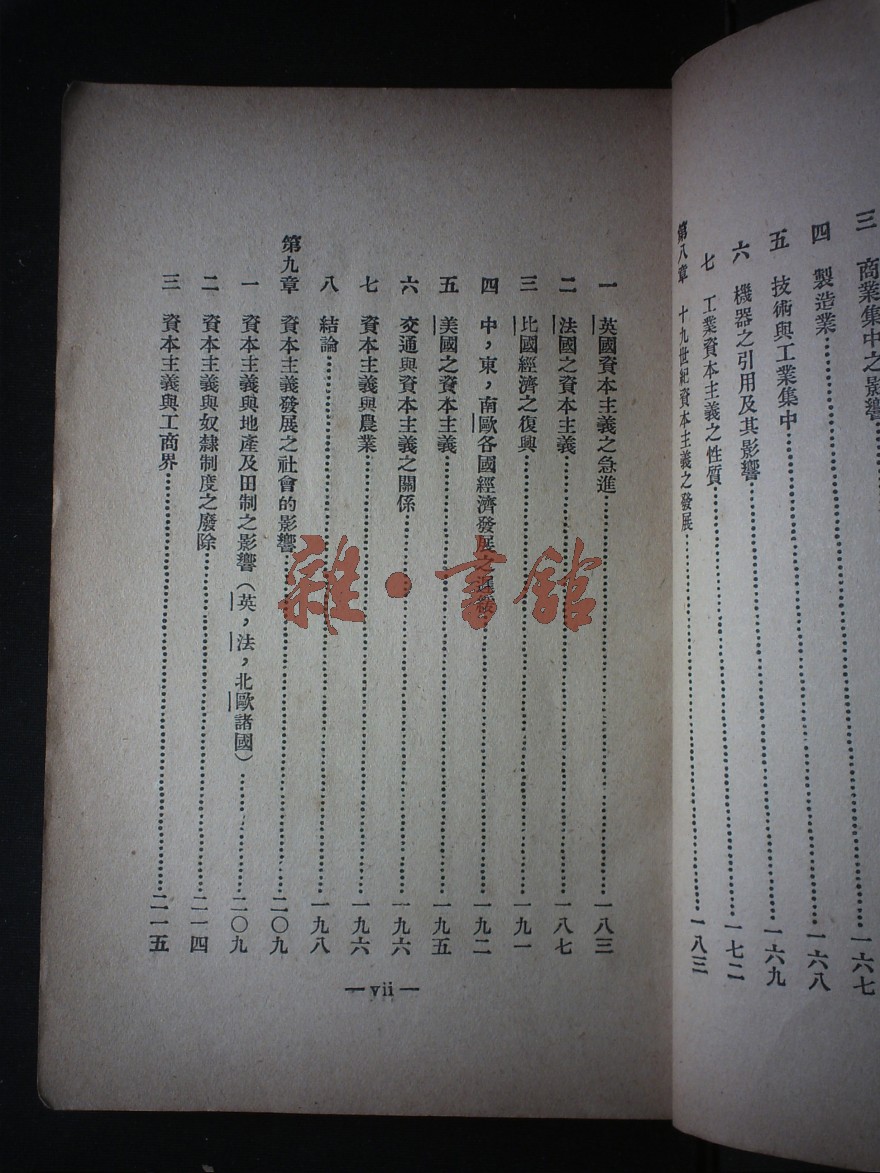 三 商業集中之影響……一六七
四 製造業……一六八
五 技術與工業集中……一六九
六 機器之引用及其影響……一七二
七 工業資本主義之性質
第八章 十九世紀資本主義之發展……一八三
一 英國資本主義之急進……一八三
二 法國之資本主義……一八七
三 比國經濟之復興……一九一
四 中，東，南歐各國經濟發展之……一九二
五 美國之資本主義……一九五
六 交通與資本主義之關係……一九六
七 資本主義與農業……一九六
八 結論……一九八
第九章 資本主義發展之社會的影響……二〇九
一 資本主義與地產及田制之影響（英，法，北歐諸國）……二〇九
二 資本主義與奴隸制度之廢除……二一四
三 資本主義與工商界……二一五
— vii —
雜·書館